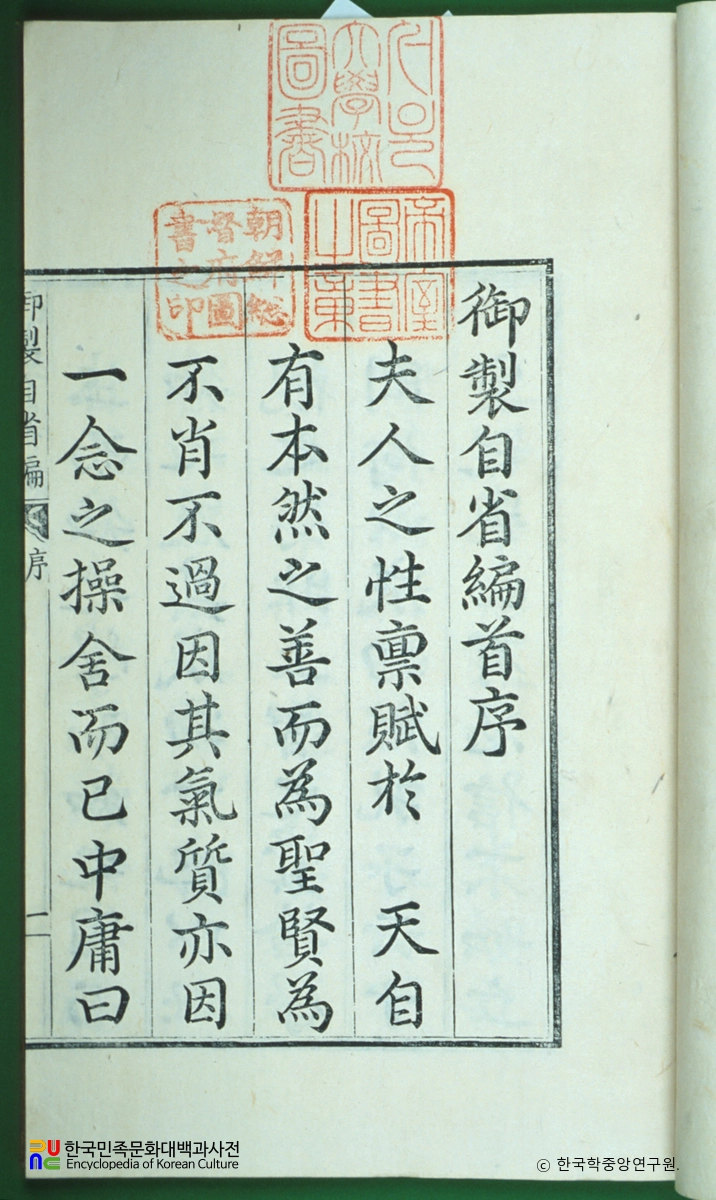 御製自省編首序
夫人之性禀賦於 天自
有本然之善而為聖賢為
不肖不過因其氣質亦因
一念之操舍而已中庸曰
御製自省編 序 二
서울大學校圖書
帝室圖書之章
朝鮮総督府圖書之印
한국민족문화대백과사전
Encyclopedia of Korean Culture
© 한국학중앙연구원.